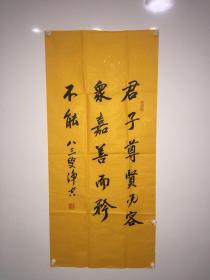 君子尊賢而容
眾嘉善而矜
不能
八三叟淨空